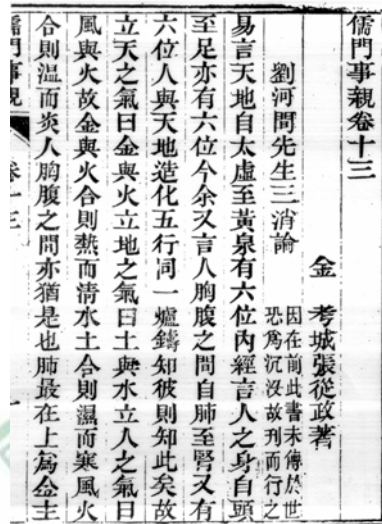 儒門事親卷十三
金　考城張從政著
劉河間先生三消論
因在前此書未傳於世
恐為沉沒故刊而行之
易言天地自太虛至黃泉有六位內經言人之身自頭
至足亦有六位今余又言人胸腹之間自肺至腎又有
六位人與天地造化五行同一爐鑄知彼則知此矣故
立天之氣曰金與火立地之氣曰土與水立人之氣曰
風與火故金與火合則熱而清水土合則濕而寒風火
合則溫而炎人胸腹之間亦猶是也肺最在上為金主
儒門事親
卷十三
一